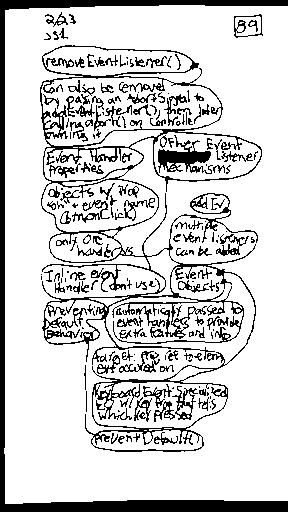 2/23
89
JS1
removeEventListener()
Can also be removed
by passing an AbortSignal to
addEventListener() then later
calling abort() on controller
owning it
Event Handler
Properties
Other Event
Listener
Mechanisms
Objects w/ prop
"on" + event name
(btn.onclick)
only one
handler
multiple
event listeners
can be added
Inline event
Handler (don't use)
Event
Objects
Preventing
Default
Behavior
automatically passed to
event handlers to provide
extra features and info
target: prop ref to elem
evt occurred on
KeyboardEvent: specialized
w/ key prop that tells
which key pressed
preventDefault()